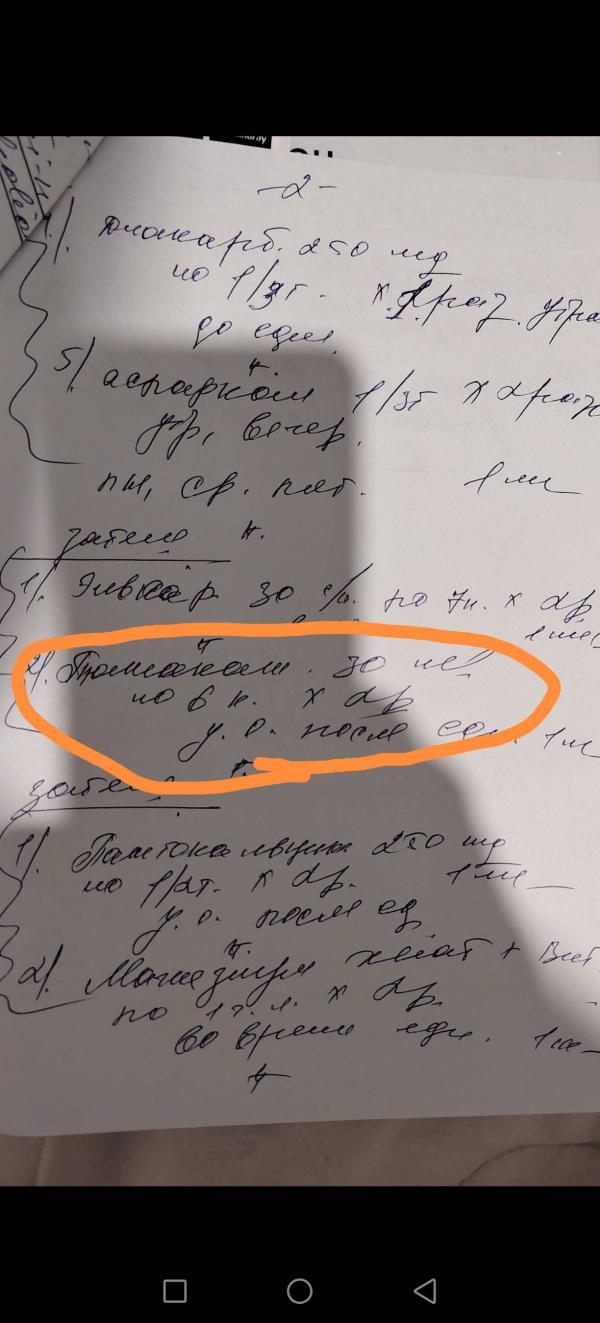 -2-
диакарб. 250 mg
по 1/3т. х 1 раз. утра
до еды.
5/. аспаркам 1/3т х 2 раза
утр, вечер.
пн, ср. пят. 1 м
затем
1/. Элькар 30 по 7к. х 2р
1 мес
2/. 30
по 6 к. х 2р
у. в. после ед. 1 м
затем
1/. Пантокальцин 250 mg
по 1/2т. х 2р. 1 м
у. в. после ед
2/. Магнезиум хелат + Вит
по 1 ч. л. х 2р.
во время еды. 1 м